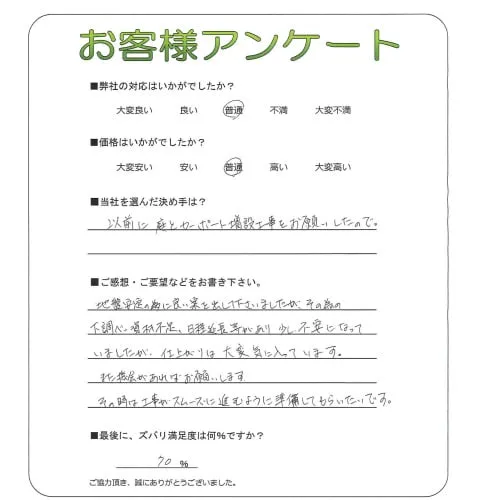 お客様アンケート
■弊社の対応はいかがでしたか？
大変良い 良い 普通 不満 大変不満
■価格はいかがでしたか？
大変安い 安い 普通 高い 大変高い
■当社を選んだ決め手は？
以前に庭とカーポート増設工事をお願いしたので。
■ご感想・ご要望などをお書き下さい。
地盤安定の為に良い案を出して下さいましたが、その為の
下調べ、資材不足、日程延長等があり少し不安になって
いましたが、仕上がりは大変気に入っています。
また機会があればお願いします
その時は工事がスムーズに進むように準備してもらいたいです。
■最後に、ズバリ満足度は何％ですか？
70 %
ご協力頂き、誠にありがとうございました。